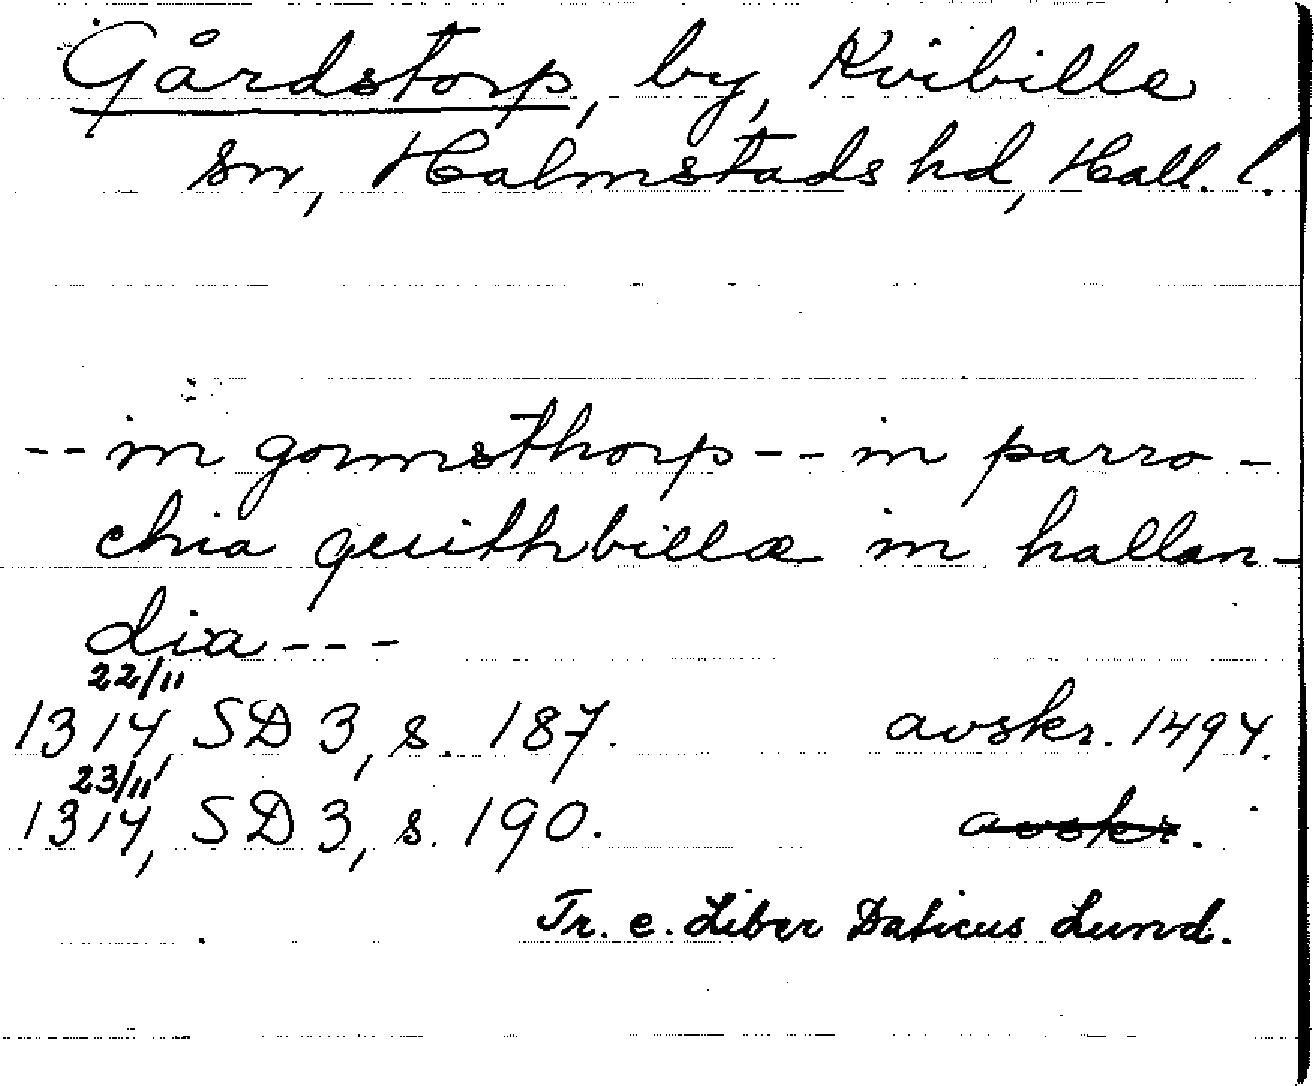 Gårdstorp, by, Kvibille
sn, Halmstads hd, Hall. l.
-- in gormsthorp -- in parro-
chia quithbillæ in hallan-
dia ---
22/11
1314, SD 3, s. 187. avskr. 1494.
23/11
1314, SD 3, s. 190. avskr.
Tr. e. Liber Daticus Lund.